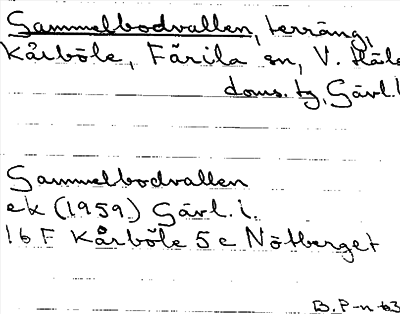 Sammelbodvallen, terräng,
Kårböle, Färila sn, V. Häls
doms. tg, Gävl. l
Sammelbodvallen
ek (1959) Gävl. l.
16 F Kårböle 5 c Nötberget
B. P-n 63